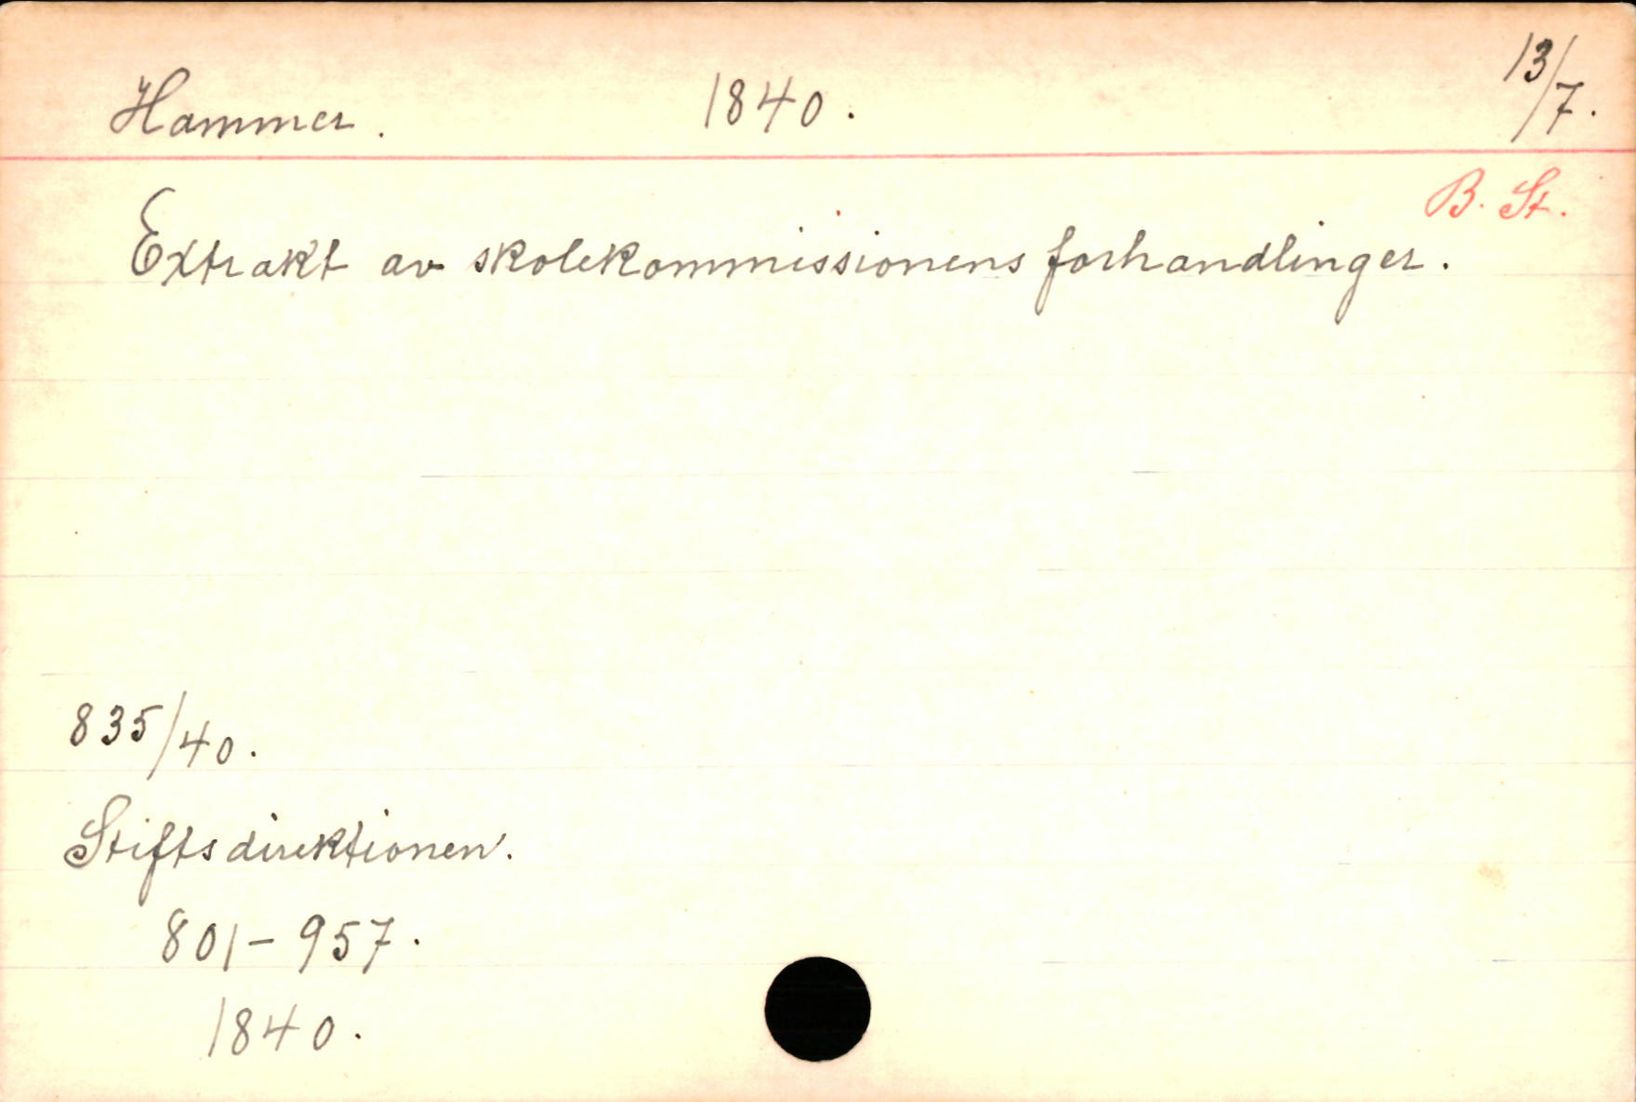 Hammer. 1840. 13/7.
B. St.
Extrakt av skolekommissionens forhandlinger.
835/40.
Stiftsdirektionen.
801-957.
1840.